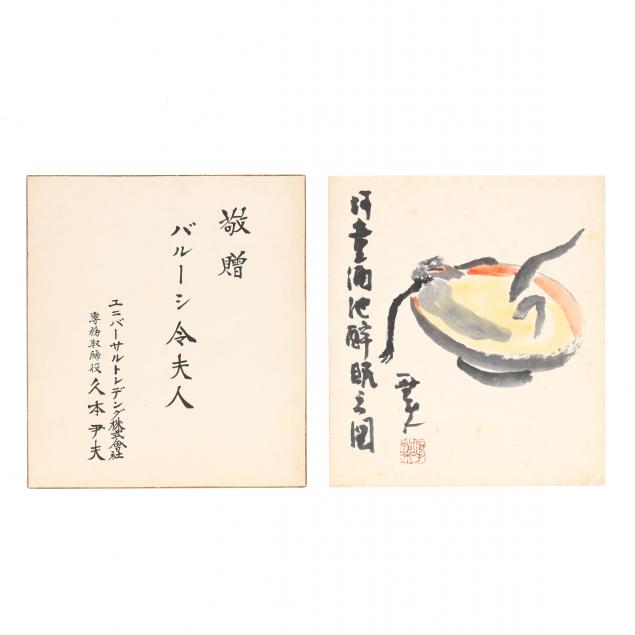 敬贈
バルーシ令夫人
ユニバーサルトレデング株式會社
専務取締役 久本尹夫
河童酒池酔眠之図